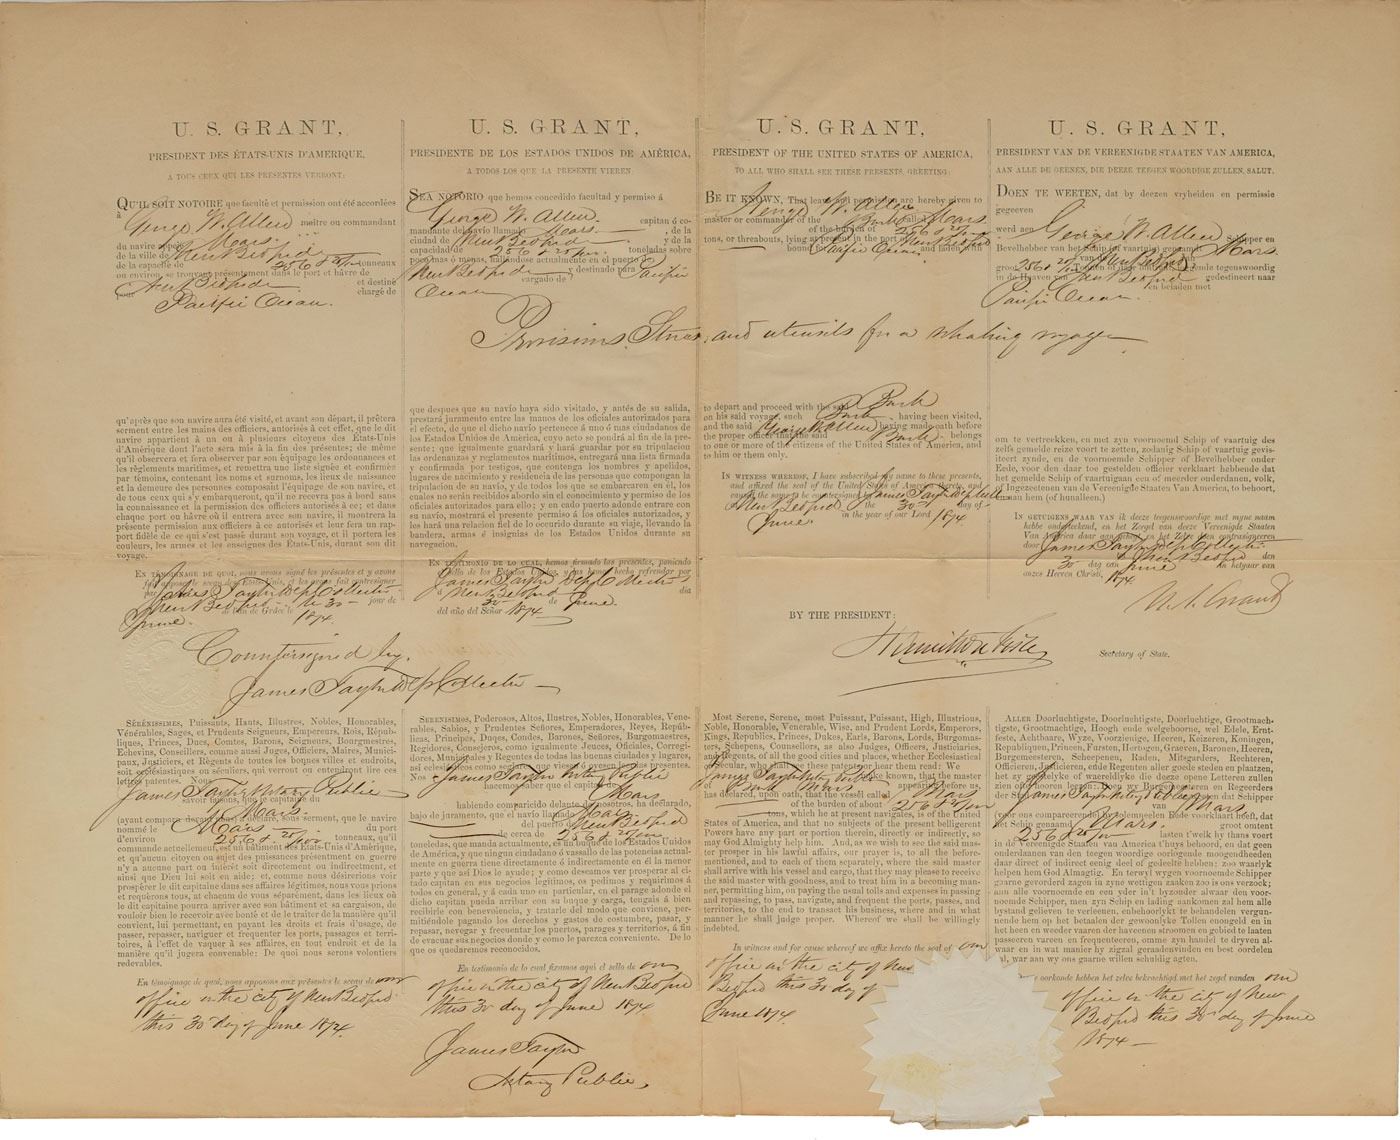 U. S. GRANT,
PRESIDENT DES ÉTATS-UNIS D'AMERIQUE,
A TOUS CEUX QUI LES PRÉSENTES VERRONT:
QU'IL SOIT NOTOIRE que faculté et permission ont été accordées
à George W. Allen maître ou commandant
du navire appelé Mars
de la ville de New Bedford
de la capacité de 256 & tonneaux
ou environ, se trouvant présentement dans le port et hâvre de
New Bedford et destiné
pour Pacific Ocean. chargé de
U. S. GRANT,
PRESIDENTE DE LOS ESTADOS UNIDOS DE AMÉRICA,
A TODOS LOS QUE LA PRESENTE VIEREN:
SEA NOTORIO que hemos concedido facultad y permiso á
George W. Allen capitan ó co-
mandante del navío llamado Mars , de la
ciudad de New Bedford y de la
capacidad de 256 toneladas sobre
pocomas ó menos, hallándose actualmente en el puerto de
New Bedford y destinado para Pacific
Ocean vargado de
U. S. GRANT,
PRESIDENT OF THE UNITED STATES OF AMERICA,
TO ALL WHO SHALL SEE THESE PRESENTS, GREETING:
BE IT KNOWN, That leave and permission are hereby given to
George W. Allen
master or commander of the Bark called Mars
of the burden of 256
tons, or threabouts, lying at present in the port of New Bedford
bound for Pacific Ocean and laden with
U. S. GRANT,
PRESIDENT VAN DE VEREENIGDE STAATEN VAN AMERICA,
AAN ALLE DE GEENEN, DIE DEEZE TEEGEN WOORDIGE ZULLEN, SALUT.
DOEN TE WEETEN, dat by deezen vryheiden en permissie
gegeeven
werd aen George W. Allen Schipper en
Bevelhebber van het Schip (of vaartuig) genaamd Mars
van New Bedford
groot 256
in de Haaven New Bedford gedestineert naar
Pacific Ocean en beladen met
Provisions, Stores, and utensils for a whaling voyage
qu'après que son navire aura été visité, et avant son départ, il prêtera
serment entre les mains des officiers, autorisés à cet effet, que le dit
navire appartient à un ou à plusieurs citoyens des Etats-Unis
d'Amérique dont l'acte sera mis à la fin des présentes; de même
qu'il observera et fera observer par son équipage les ordonnances et
les règlements maritimes, et remettra une liste signée et confirmée
par témoins, contenant les noms et surnoms, les lieux de naissance
et la demeure des personnes composant l'équipage de son navire, et
de tous ceux qui s'y embarqueront, qu'il ne recevra pas à bord sans
la connaissance et permission des officiers autorisés à ce; et dans
chaque port ou hâvre où il entrera avec son navire, il montrera la
présente permission aux officiers à ce autorisés et leur fera un rap-
port fidèle de ce qui s'est passé durant son voyage, et il portera les
couleurs, les armes et les enseignes des Etats-Unis, durant son dit
voyage.
EN TÉMOIGNAGE DE QUOI, nous avons signé les présentes et y avons
fait apposer le sceau des Etats-Unis, et les avons fait contresigner
par James Taylor Dep Collector
à New Bedford le 30 jour de
June. 1874
que despues que su navío haya sido visitado, y antés de su salida,
prestará juramento entre las manos de los oficiales autorizados para
el efecto, de que el dicho navío pertenece á uno ó mas ciudadanos de
los Estados Unidos de América, cuyo acto se pondrá al fin de la pre-
sente; que igualmente guardará y hará guardar por su tripulacion
las ordenanzas y reglamentos marítimos, entregará una lista firmada
y confirmada por testigos, que contenga los nombres y apelidos,
lugares de nacimiento y residencia de las personas que compongan la
tripulacion de su navío, y de todos los que se embarcaren en él, los
cuales no serán recibidos abordo sin el conocimiento y permiso de los
oficiales autorizados para ello; y en cada puerto adonde entrare con
su navío, mostrará el presente permiso á los oficiales autorizados, y
les hará una relacion fiel de lo ocurido durante su viaje, llevando la
bandera, armas é insignias de los Estados Unidos durante su
navegacion.
EN TESTIMONIO DE LO CUAL, hemos firmado las presentes, poniendo
sello de los Estados Unidos, y las hemos hecho refrendar por
James Taylor Dep Collector
á New Bedford dia
30 de June.
del año del Señor 1874
to depart and proceed with the said Bark
on his said voyage, such Bark having been visited,
and the said George W. Allen having made oath before
the proper officer that the said Bark belongs
to one or more of the citizens of the United States of America, and
to him or them only.
IN WITNESS WHEREOF, I have subscribed my name to these presents,
and affixed the seal of the United States of America thereto, and
caused the same to be countersigned by James Taylor Dep Collector
New Bedford the 30 day of
June in the year of our Lord 1874
om te vertreekken, en met zyn voornoemd Schip of vaartuig des
zelfs gemelde reize voort te zetten, zodanig Schip of vaartuig gevis-
iteert zynde, en de voornoemde Schipper of Bevelhebber onder
Eede, voor den daar toe gestelden officier verklaart hebbende dat
het gemelde Schip of vaartuigaan een of meerder onderdanen, volk,
of Ingezeetenen van de Vereenigde Staaten Van America, te behoort,
aan hem (of hunalleen.)
IN GETUIGENS WAAR VAN ik deeze teegenwoordige met myne naam
hebbe onderteekend, en het Zeegel van deeze Vereenigde Staaten
Van America daar aan gehegt en het Zelve doen contrasigneeren
door James Taylor Dep Collector
New Bedford den
30 dag van June in hetjaar van
onzes Heeren Christi, 1874
U. S. Grant
BY THE PRESIDENT:
Hamilton Fish
Secretary of State.
Countersigned by,
James Taylor Dep Collector
SÉRÉNISSIMES, Puissants, Hauts, Illustres, Nobles, Honorables,
Vénérables, Sages, et Prudents Seigneurs, Empereurs, Rois, Répub-
liques, Princes, Ducs, Comtes, Barons, Seigneurs, Bourgmestres,
Echevins, Conseillers, comme aussi Juges, Officiers, Maires, Munici-
paux, Justiciers, et Régents de toutes les bonnes villes et endroits,
soit ecclésiastiques ou séculiers, qui verront ou entendront lire ces
lettres patentes. Nous
James Taylor Notary Public
savoir faisons, que le capitaine du
Mars
(ayant comparu devant nous) a déclaré, sous serment, que le navire
nommé le Mars du port
d'environ 256 & tonneaux, qu'il
commande actuellement, est un bâtiment des Etats-Unis d'Amérique,
et qu'aucun citoyen ou sujet des puissances présentement en guerre
n'y a aucune part ou intérêt soit directement ou indirectement,
ainsi que Dieu lui soit en aide; et, comme nous désirerions voir
prospérer le dit capitaine dans ses affaires légitimes, nous vous prions
et requérons tous, et chacun de vous séparément, dans les lieux où
le dit capitaine pourra arriver avec son bâtiment et sa cargaison, de
vouloir bien le recevoir avec bonté et de le traiter de la manière qu'il
convient, lui permettant, en payant les droits et frais d'usage, de
passer, repasser, naviguer et frequenter les ports, passages et terri-
toires, à l'effet de vaquer à ses affaires, en tout endroit et de la
manière qu'il jugera convenable: De quoi nous serons volontiers
redevables.
En témoignage de quoi, nous apposons aux présentes le sceau de our
office in the city of New Bedford
this 30 day of June 1874.
SERENISIMOS, Poderosos, Altos, Ilustres, Nobles, Honorables, Vene-
rables, Sabios, y Prudentes Señores, Emperadores, Reyes, Repúb-
licas, Príncipes, Duqes, Condes, Barones, Señores, Burgomaestres,
Regidores, Consejeros, como igualmente Jeuces, Oficiales, Corregi-
dores, Municipales y Regentes de todas las buenas ciudades y lugares,
así celesiasticos como seglares, que vieren ó oyesen leer las presentes.
Nos James Taylor Notary Public
hacemos saber que el capitan
Mars
habiendo comparicido delante de nosotros, ha declarado,
bajo de juramento, que el navío llamado Mars
New Bedford
de cerca de 256 &
toneledas, que manda actualmente, es un buque de los Estados Unidos
de América, y que ningun ciudadano ó vassallo de las potencias actual-
mente en guerra tiene directamente ó indirectamente en él la menor
parte y que así Dios le ayude; y como deseamos ver prosperar al ci-
tado capitan en sus negocios legítimos, os pedimos y requirimos á
todos en general, y á cada uno en particular, en el parage adonde el
dicho capitan pueda arribar con su buque y carga, tengais á bien
recibirle con benevolencia, y tratarle del modo que conviene, per-
mitiéndole pagando los derechos y gastos de costumbre, pasar, y
repasar, nevegar y frecuentar los puertos, parages y territorios, á fin
de evacuar sus negocios donde y como le parezca conveniente. De lo
que os quedaremos reconocidos.
En testimonio de lo cual fixamos aqui el sello de our
office in the city of New Bedford
this 30 day of June 1874
James Taylor
Notary Public,
Most Serene, Serene, most Puissant, Puissant, High, Illustrious,
Noble, Honorable, Venerable, Wise, and Prudent Lords, Emperors,
Kings, Republics, Princes, Dukes, Earls, Barons, Lords, Burgomas-
ters, Schepens, Counsellors, as also Judges, Officers, Justiciaries,
and Regents, of all the good cities and places, whether Ecclesiastical
or secular, who shall see these patents or hear them read: We
James Taylor Notary Public make known, that the master
of Bark Mars appearing before us,
has declared, upon oath, that the vessel called Mars
of the burden of about 256 &
tons, which he at present navigates, is of the United
States of America, and that no subjects of the present belligerent
Powers have any part or portion therein, directly or indirectly, so
may God Almighty help him. And, as we wish to see the said mas-
ter prosper in his lawful affairs, our prayer is, to all the before-
mentioned, and to each of them separately, where the said master
shall arrive with his vessel and cargo, that they may please to receive
the said master with goodness, and to treat him in a becoming man-
ner, permitting him, on paying the usual tolls and expenses in passing
and repassing, to pass, navigate, and frequent the ports, passes, and
territories, to the end to transact his business, where and in what
manner he shall judge proper. Whereof we shall be willingly
indebted.
In witness and for cause whereof we affix hereto the seal of our
office in the city of New
Bedford this 30 day of
June 1874.
ALLER Doorluchtigste, Doorluchtigste, Doorluchtige, Grootmach-
tigste, Grootmachtige, Hoogh ende welgeboorne, wel Edele, Ernt-
feste, Achtbaarr, Wyze, Voorzienige, Heeren, Keizeren, Koningen,
Republiquen, Princen, Fursten, Hertogen, Graeven, Baronen, Heeren,
Burgemeesteren, Scheepenen, Raden, Mitsgarders, Rechteren,
Officieren, Justicieren, ende Regenten aller goede steden en plaatzen,
het zy geestelyke of waereldlyke die deeze opene Letteren zullen
zien of hooren leezen: doen wy Burgemeesteren en Regeerders
der Stad James Taylor Notary Public dat Schipper
van Mars
(voor ons compareerende) by solemneelen Eede voorklaart heeft, dat
het Schip genaamt Mars. groot omtent
256 & lasten t'welk hy thans voert
in de Vereenigde Staaten van America t'huys behoort, en dat geene
onderdaanen van den teegen woordige oorlogende moogendheeden
daar direct of indirect eenig deel of gedeelte hebben; zoo waarlyk
helpen hem God Almagtig. En terwyl wygen voornoemde Schipper
gaarne gevorderd zagen in zyne wettigen zaaken zoo is ons verzoek;
aan alle voornoemde en een yder in't byzonder alwaar den voor-
noemde Schipper, met zyn Schip en lading aankomen zal hem alle
bystand gelieven te verleenen, enbehoorlykt te behandelen vergun-
nende hem op het betaalen der gewoonlyke Tollen enongeld en in
het heen en weeder vaaren der haveenen stroomen en gebied te laaten
passeeren vareen en frequenteeren, omme zyn handel te dryven al-
waar en in wat manier hy zigral geraadenvinden en best oordelen
zal, war aan wy ons gaarne willen schuldig agten.
oorkonde hebben het zelve bekrachtigd met het zegel vanden our
office in the city of New
Bedford this 30 day of June
1874